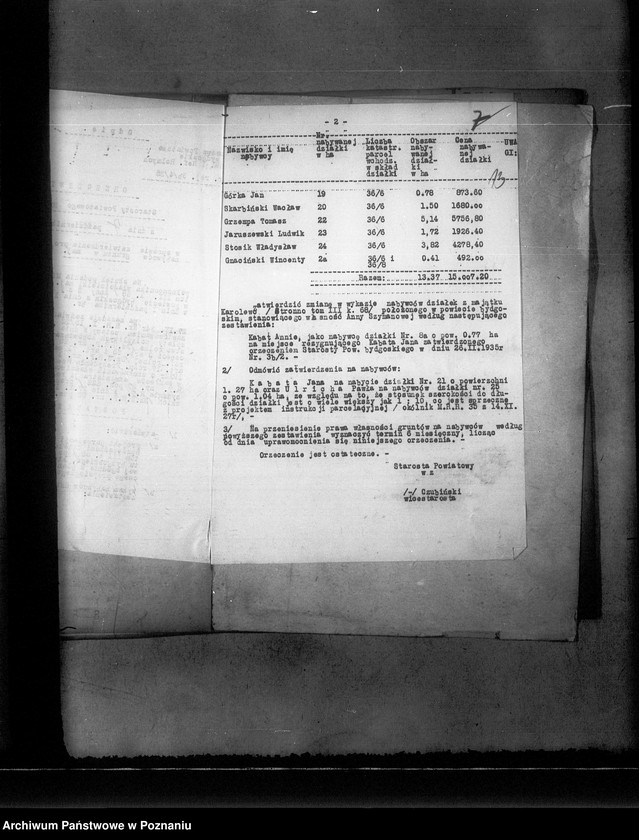 - 2 -
7
Nazwisko i imię nabywcy | Nr. nabywanej działki w ha | Liczba katastr. parcel wchodz. w skład działki | Obszar nabywanej działki w ha | Cena nabywanej działki | UWAGI:
13
Górka Jan 19 36/6 0.78 873.60
Skarbiński Wacław 20 36/6 1.50 1680.oo
Grzempa Tomasz 22 36/6 5,14 5756,80
Jaruszewski Ludwik 23 36/6 1,72 1926.40
Stosik Władysław 24 36/6 3,82 4278,40
Gnaciński Wincenty 2a 36/6 i 36/8 0.41 492.oo
Razem: 13.37 15.oo7.20
zatwierdzić zmianę w wykazie nabywców działek z majątku
Karolewo / Stronno tom III k. 68/ położonego w powiecie bydgo-
skim, stanowiącego własność Anny Szymanowej według następującego
zestawienia:
Kabat Annie, jako nabywcę działki Nr. 8a o pow. 0.77 ha
na miejsce rezygnującego Kabata Jana zatwierdzonego
orzeczeniem Starosty Pow. bydgoskiego w dniu 26.II.1935r
Nr. 3b/2. -
2/ Odmówić zatwierdzenia na nabywców:
K a b a t a Jana na nabycie działki Nr. 21 o powierzchni
1. 27 ha oraz U l r i c h a Pawła na nabywców działki nr. 25
o pow. 1,04 ha, ze względu na to, że stosunek szerokości do dłu-
gości działki jest o wiele większy jak 1 : 10, co jest sprzeczne
z projektem instrukcji parcelacyjnej / okólnik M.R.R. 35 z 14.II.
27r/, -
3/ Na przeniesienie prawa własności gruntów na nabywców według
powyższego zestawienia wyznaczyć termin 6 miesięczny, licząc
od dnia uprawomocnienia się niniejszego orzeczenia. -
Orzeczenie jest ostateczne. -
Starosta Powiatowy
w.z
/-/ Czubiński
wicestarosta
Archiwum Państwowe w Poznaniu